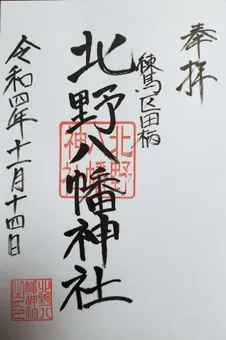 奉拝
練馬区田柄
北野八幡神社
令和四年十一月十四日
北野八幡神社